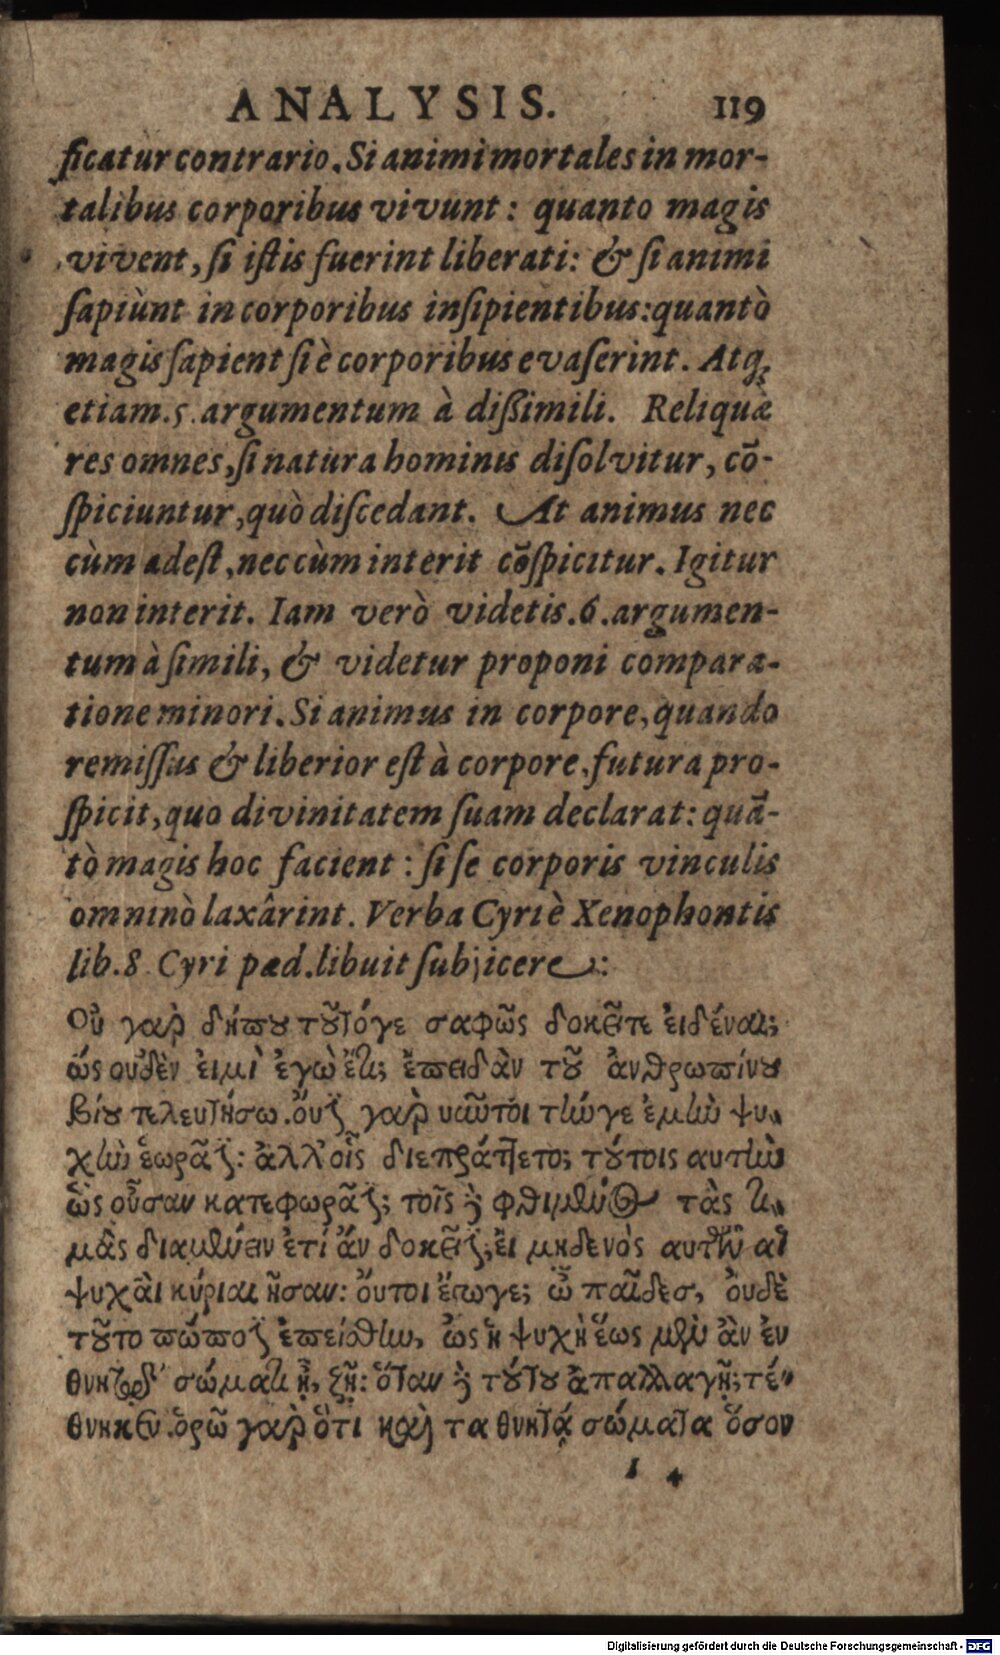 ANALYSIS. 119
ficatur contrario. Si animi mortales in mor-
talibus corporibus vivunt: quanto magis
vivent, si istis fuerint liberati: & si animi
sapiùnt in corporibus insipientibus: quantò
magis sapient si è corporibus evaserint. Atq;
etiam. 5. argumentum à dißimili. Reliquæ
res omnes, si natura hominis disolvitur, cō-
spiciuntur, quò discedant. At animus nec
cùm adest, nec cùm interit cōspicitur. Igitur
non interit. Iam verò videtis. 6. argumen-
tum à simili, & videtur proponi compara-
tione minori. Si animus in corpore, quando
remissus & liberior est à corpore, futura pro-
spicit, quo divinitatem suam declarat: quā-
tò magis hoc facient: si se corporis vinculis
omninò laxârint. Verba Cyri è Xenophontis
lib. 8. Cyri pæd. libuit subjicere:
Οὐ γὰρ δήπου τοῦτόγε σαφῶς δοκεῖτε εἰδέναι;
ὡς οὐδὲν εἰμὶ ἐγὼ ἔτι; ἐπειδὰν τοῦ ἀνθρωπίνου
βίου τελευτήσω. οὐδὲ γὰρ νῦν τοι τήνγε ἐμὴν ψυ-
χὴν ἑωρᾶτε: ἀλλ' οἷς διεπράττετο; τούτοις αυτὴν
ὡς οὖσαν κατεφωρᾶτε; τοῖς δὲ φθιμένοις τὰς τι-
μὰς διαμένειν ἐτί ἂν δοκεῖτε; εἰ μηδενὸς αυτῶν αἱ
ψυχὰι κύριαι ἦσαν: οὔτοι ἔγωγε; ὦ παῖδες, οὐδὲ
τοῦτο πώποτε ἐπείσθην, ὡς ἡ ψυχὴ ἕως μὲν ἂν ἐν
θνητῷ σώματι ᾖ, ζῇ: ὅταν δὲ τούτου ἀπαλλαγῇ; τέ-
θνηκεν. ὁρῶ γὰρ ὅτι καὶ τα θνητά σώματα ὅσον
I 4
Digitalisierung gefördert durch die Deutsche Forschungsgemeinschaft - DFG